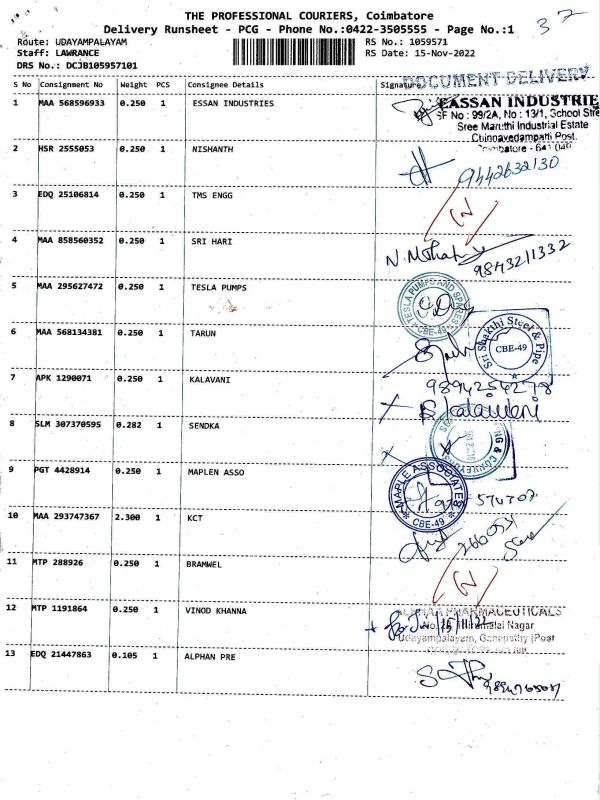 THE PROFESSIONAL COURIERS, Coimbatore
37
Delivery Runsheet - PCG - Phone No.:0422-3505555 - Page No.:1
Route: UDAYAMPALAYAM
RS No.: 1059571
Staff: LAWRANCE
RS Date: 15-Nov-2022
DRS No.: DCJB105957101
DOCUMENT DELIVERY
S No Consignment No Weight PCS Consignee Details Signature
1 MAA 568596933 0.250 1 ESSAN INDUSTRIES
EASSAN INDUSTRIE
SF No : 99/2A, No : 13/1, School Stre
Sree Maruthi Industrial Estate
Chinnavedampatti Post.
2 HSR 2555053 0.250 1 NISHANTH
9442632130
3 EDQ 25106814 0.250 1 TMS ENGG
4 MAA 858560352 0.250 1 SRI HARI
9843211332
5 MAA 295627472 0.250 1 TESLA PUMPS
TESLA PUMPS AND SPARES
CBE-49
6 MAA 568134381 0.250 1 TARUN
Sri Shakthi Steel & Pipe
CBE-49
7 APK 1290071 0.250 1 KALAVANI
9894254278
8 SLM 307370595 0.282 1 SENDKA
9 PGT 4428914 0.250 1 MAPLEN ASSO
MAPLE ASSOCIATES
CBE-49
10 MAA 293747367 2.300 1 KCT
11 MTP 288926 0.250 1 BRAMWEL
12 MTP 1191864 0.250 1 VINOD KHANNA
PHARMACEUTICALS
Nagar
Udayampalayam, Ganapathy (Post
13 EDQ 21447863 0.105 1 ALPHAN PRE